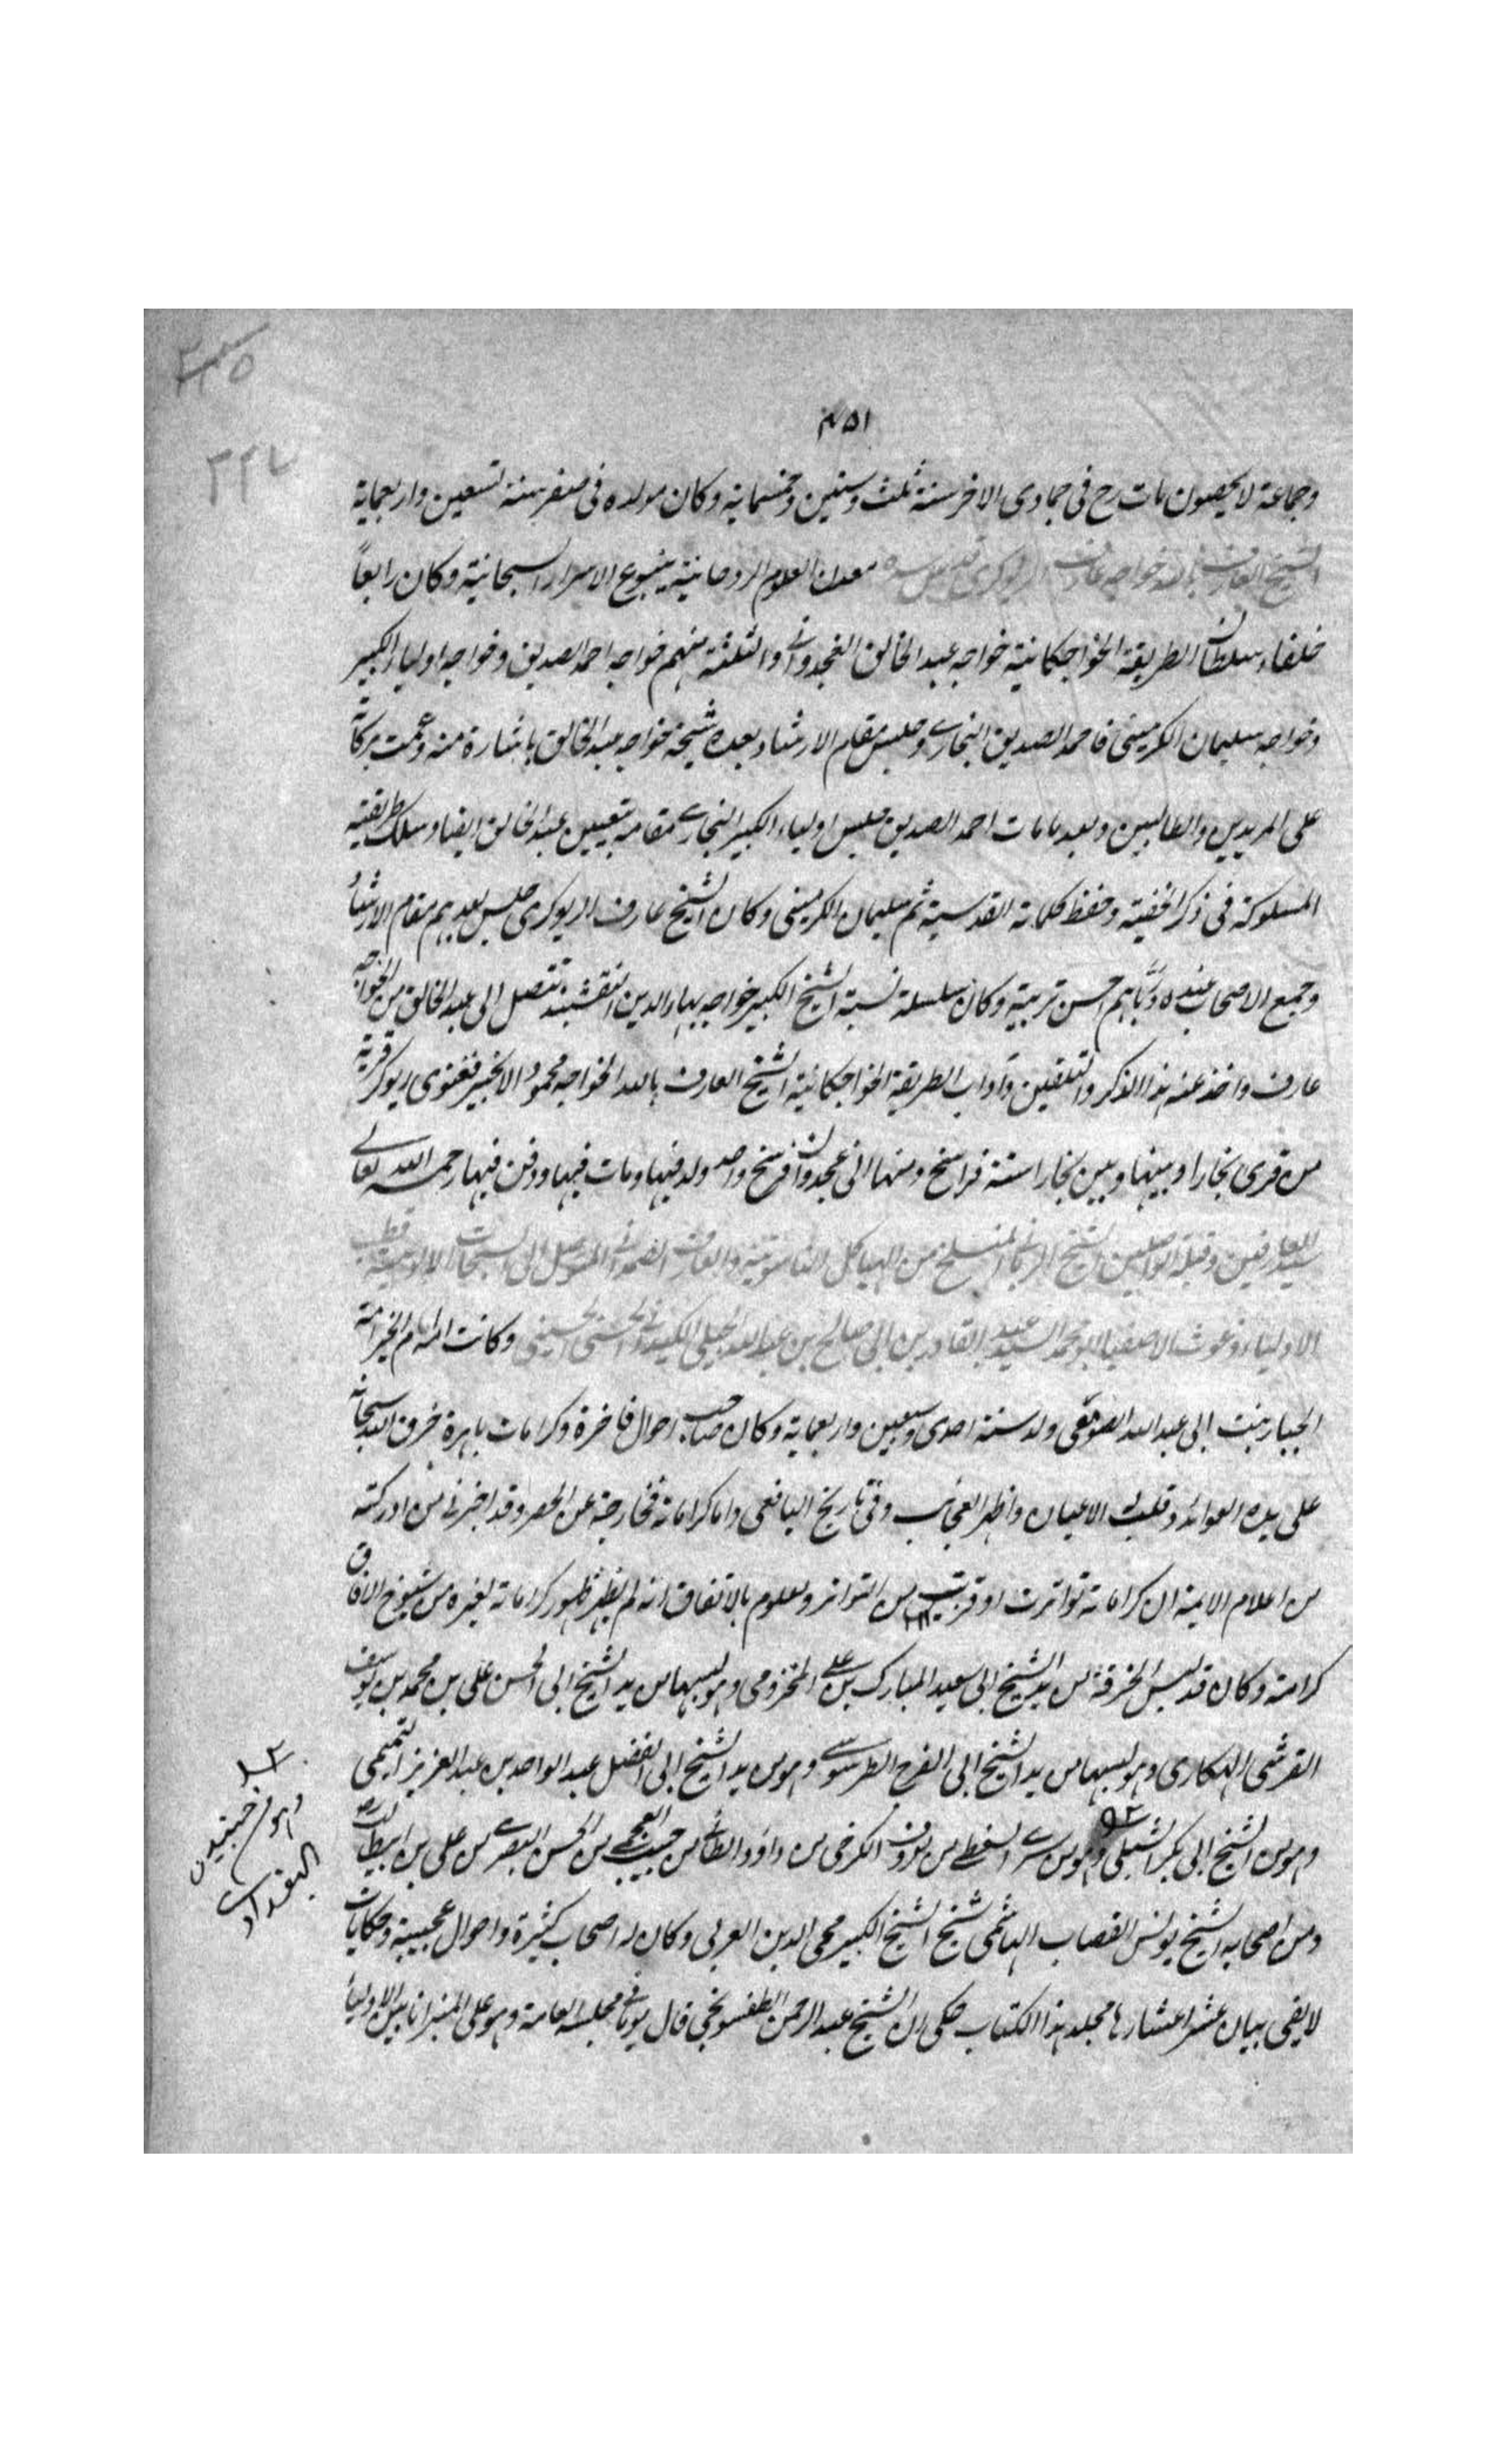 ٣٣٥
٤٥١
٢٢٧
وجماعة لا يحصون مات رح فى جمادى الاخر سنة ثلث وستين وخمسماية وكان مولده فى صفر سنة تسعين واربعماية
الشيخ العارف بالله خواجه عارف الريوكرى قدس سره معدن العلوم الروحانية ينبوع الاسرار السبحانية وكان رابعاً
خلفاء سلطان الطريقة الخواجكانية خواجه عبد الخالق الغجدوانى والثلثة منهم خواجه احمد الصديق وخواجه اولياء الكبير
وخواجه سليمان الكرمينى فاحمد الصديق البخارى جلس مقام الارشاد بعده شيخه خواجه عبد الخالق باشارة منه وعمت بركاته
على المريدين والطالبين وبعد ما مات احمد الصديق جلس اولياء الكبير البخارى مقامه بتعيين عبد الخالق ايضا وسلك طريقته
المسلوكة فى ذكر الخفية وحفظ كلماته القدسية ثم سليمان الكرمينى وكان الشيخ عارف الريوكرى جلس بعدهم مقام الارشاد
وجمع الاصحاب عنده وربّاهم احسن تربية وكان سلسلة نسبة الشيخ الكبير خواجه بهاء الدين النقشبند تتصل الى عبد الخالق من الخواجه
عارف واخذ عنه هذا الذكر والتلقين وآداب الطريقة الخواجكانية الشيخ العارف بالله الخواجه محمود الانجير فغنوى ريوكر قرية
من قرى بخارا وبينها وبين بخارا ستة فراسخ ومنها الى غجدوان فرسخ واحد ولد فيها ومات فيها ودفن فيها رحمه الله تعالى
سيد العارفين وقبلة الواصلين الشيخ الربانى المنسلخ من الهياكل الناسوتية والعارف الصمدانى المتوصل الى السبحات اللاهوتية قطب
الاولياء وغوث الاصفيا ابو محمد السيد عبد القادر بن ابى صالح بن عبد الله الجيلى الكيلانى الحسنى الحسينى وكانت امه ام الخير امة
الجبار بنت ابى عبد الله الصومعى ولد سنة احدى وسبعين واربعماية وكان صاحب احوال فاخرة وكرامات باهرة خرق الله سبحانه
على يده العوائد وقلب له الاعيان واظهر العجائب وفى تاريخ اليافعى واما كراماته فخارجة عن الحصر وقد اخبرنى من ادركته
من اعلام الايمة ان كراماته تواترت او قربت من التواتر ومعلوم بالاتفاق انه لم يظهر ظهور كراماته لغيره من شيوخ الافاق
كرامته وكان قد لبس الخرقة من يد الشيخ ابى سعيد المبارك بن على المخزومى وهو لبسها من يد الشيخ ابى الحسن على بن محمد بن يوسف
القرشى الهكارى وهو لبسها من يد الشيخ ابى الفرح الطرسوسى وهو من يد الشيخ ابى الفضل عبد الواحد بن عبد العزيز التميمى
وهو من الشيخ ابى بكر الشبلى وهو من سرى السقطى من معروف الكرخى من داؤد الطائى من حبيب العجمى من الحسن البصرى من على بن ابيطالب
وهو من جنيد البغدادى
ومن اصحابه الشيخ يونس القصاب الهاشمى شيخ الشيخ الكبير محى الدين العربى وكان له اصحاب كثيرة واحوال عجيبة وحكايات
لا يفى ببيان عشر اعشارها مجلد هذا الكتاب حكى ان الشيخ عبد الرحمن الطفسونجى قال يوما فى مجلسه العامة وهو على المنبر انا بين الاولياء